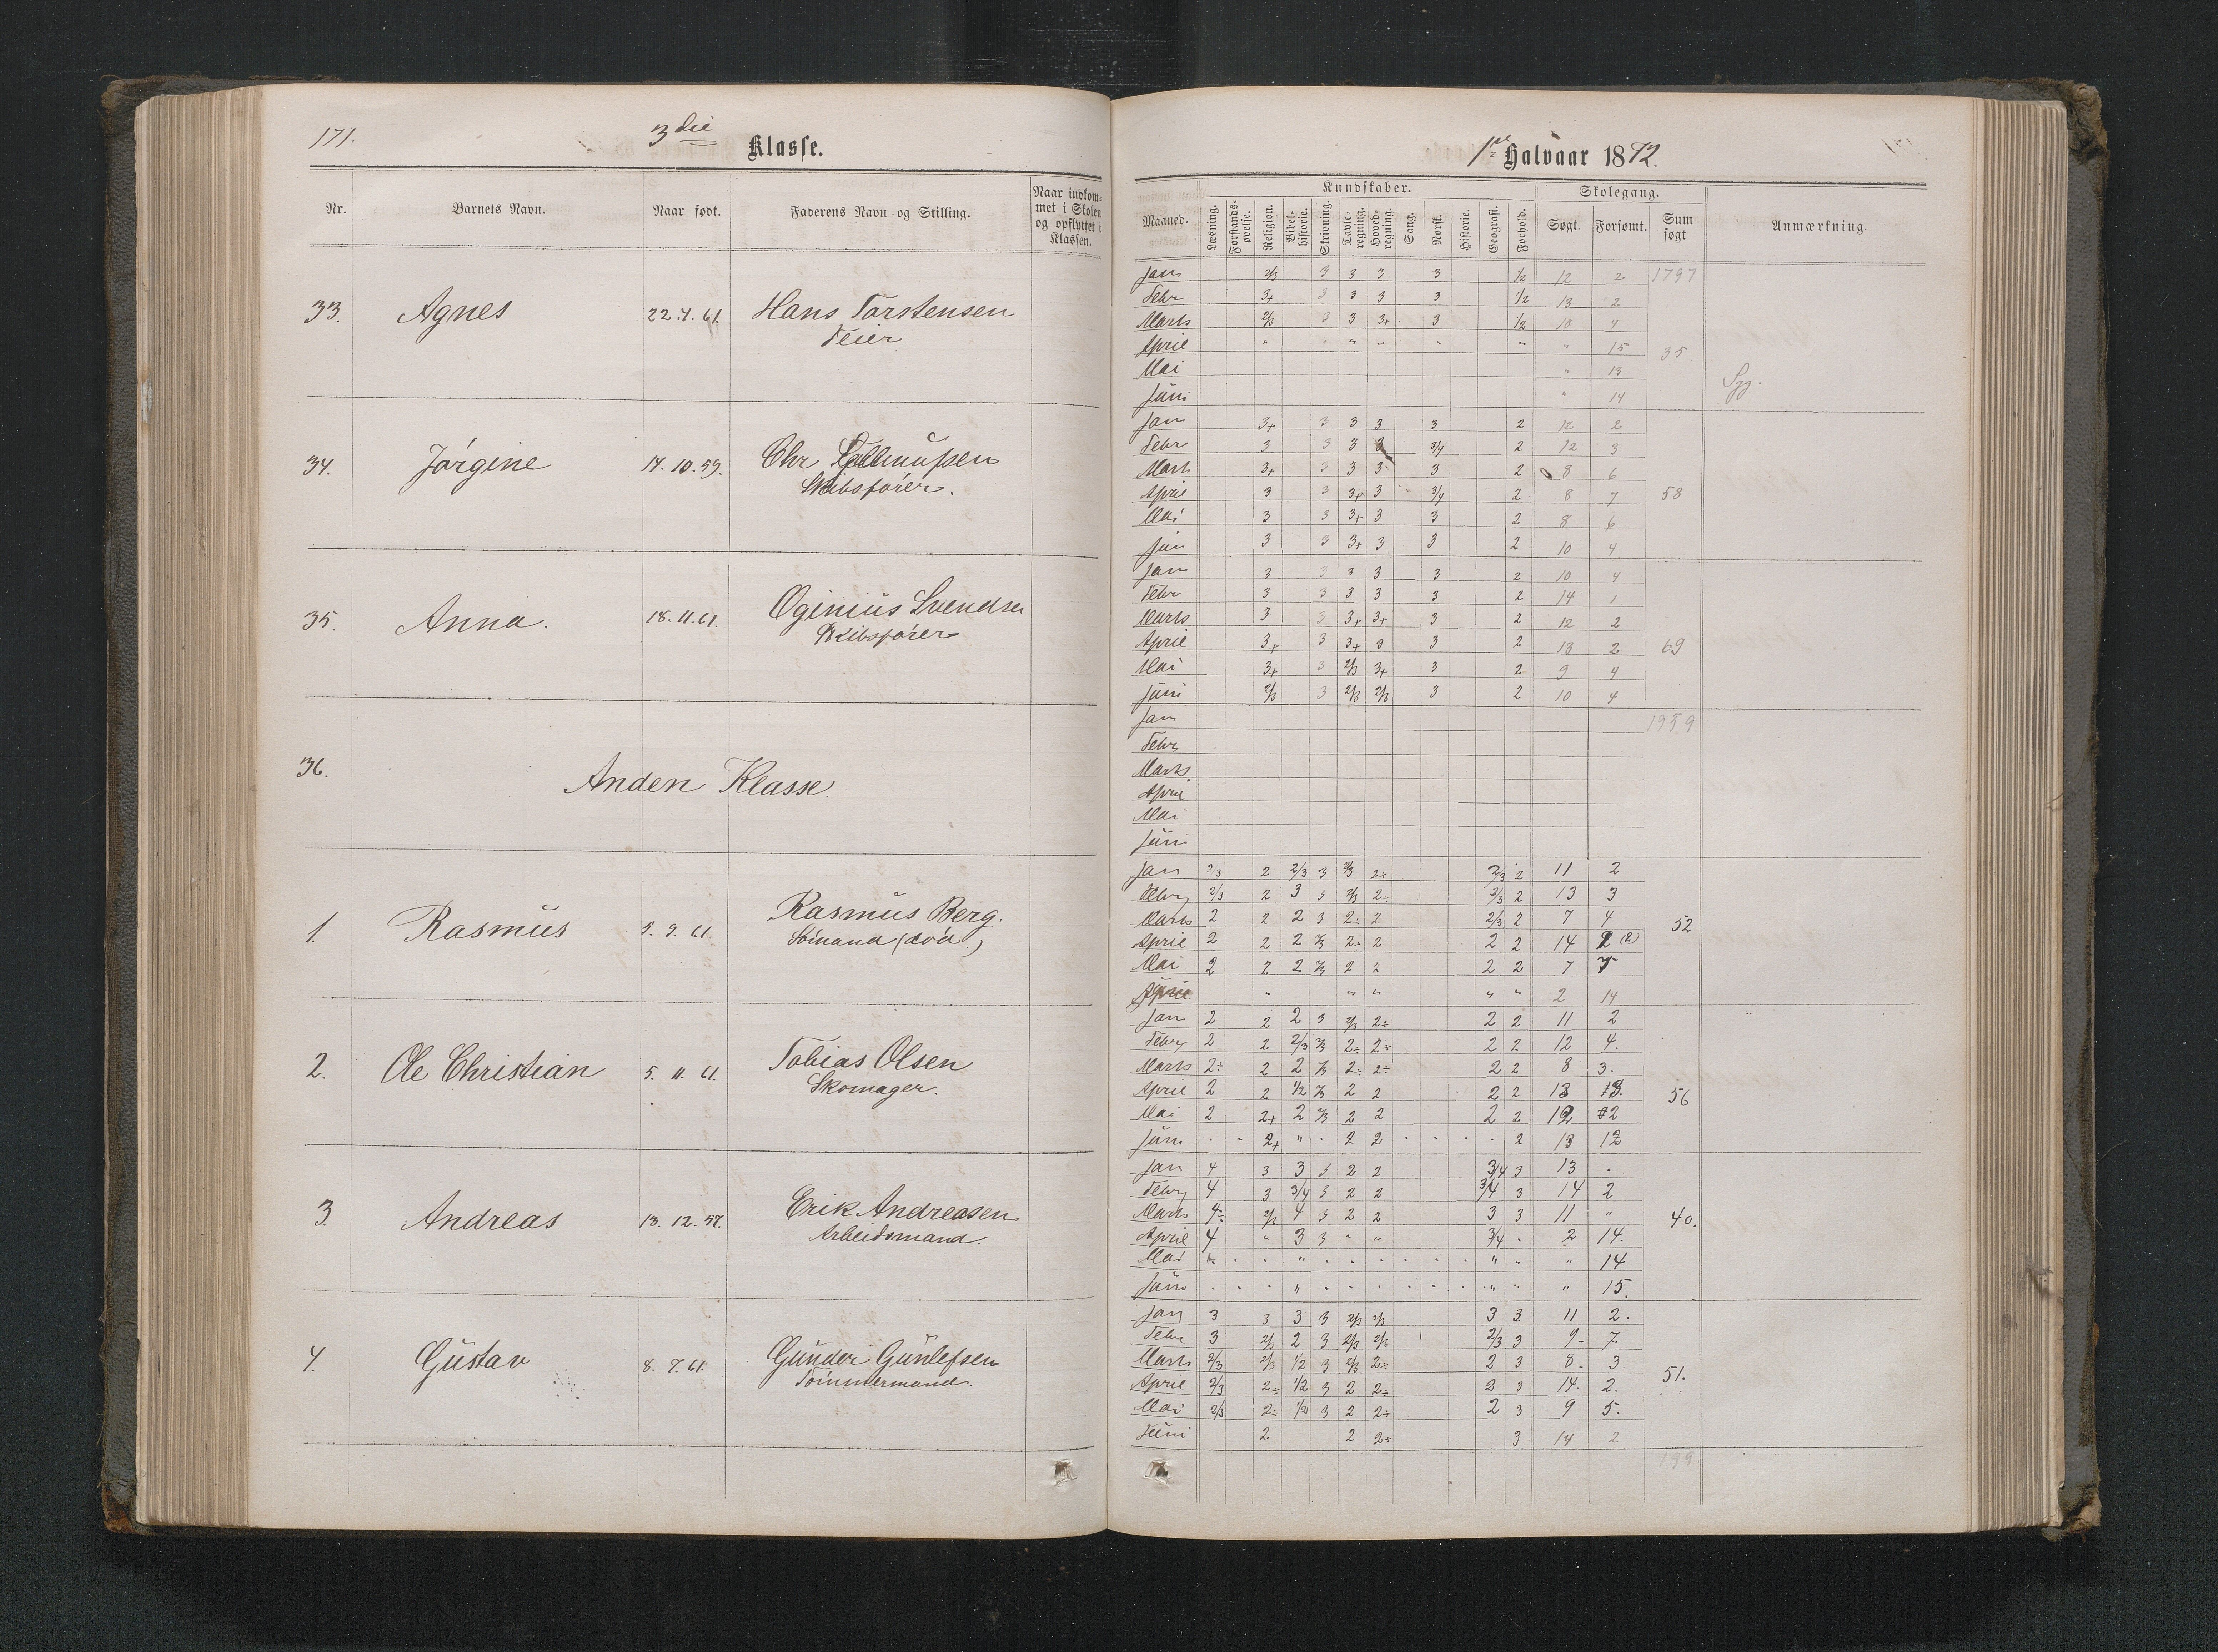 171.
3die
Klasse.
Nr.
Barnets Navn.
Naar født.
Faderens Navn og Stilling.
Naar indkom-
met i Skolen
og opflyttet i
Klassen.
33. Agnes 22.4.61. Hans Torstensen
Feier
34. Jørgine 14.10.59. Chr
Skibsfører.
35. Anna. 18.11.61. Oginius Svendsen
Skibsfører
36. Anden Klasse
1. Rasmus 5.9.61. Rasmus Berg.
Sømand (død.)
2. Ole Christian 5.11.61. Tobias Olsen
Skomager.
3. Andreas 13.12.57. Erik Andreasen
Arbeidsmand.
4. Gustav 8.7.61. Gunder Gunlefsen
Tømmermand.
1ste Halvaar 1872.
Kundskaber.
Skolegang.
Maaned.
Læsning.
Forstands-
øvelse.
Religion.
Bibel-
historie.
Skrivning.
Tavle-
regning.
Hoved-
regning.
Sang.
Norsk.
Historie.
Geografi.
Forhold.
Søgt.
Forsømt.
Sum
søgt
Anmærkning.
Jan 2/3 3 3 3 3 1/2 12 2 1797
Febr 3+ 3 3 3 3 1/2 13 2
Marts 2/3 3 3 3+ 3 1/2 10 4
April " " " " " " " 15 35
Mai " 13
Juni " 14 Syg.
Jan 3+ 3 3 3 3 2 12 2
Febr 3 3 3 3 3/4 2 12 3
Mart 3+ 3 3 3 3 2 8 6
April 3 3 3+ 3 3/4 2 8 7 58
Mai 3 3 3+ 3 3 2 8 6
Jun 3 3 3+ 3 3 2 10 4
Jan 3 3 3 3 3 2 10 4
Febr 3 3 3 3 3 2 14 1
Marts 3 3 3+ 3+ 3 2 12 2
April 3+ 3 3+ 3 3 2 13 2 69
Mai 3+ 3 2/3 3+ 3 2 9 4
Juni 2/3 3 2/3 2/3 3 2 10 4
Jan 1959
Febr
Marts.
April
Mai
Juni
Jan 2/3 2 2/3 3 2/3 2÷ 2/3 2 11 2
Febry 2/3 2 3 3 2/3 2÷ 2/3 2 13 3
Marts 2 2 2 3 2÷ 2 2/3 2 7 4 52
April 2 2 2 2/3 2÷ 2 2 2 14 2 (2)
Mai 2 2 2 2/3 2 2 2 2 7 7
" " " " " 2 14
Jan 2 2 2 3 2/3 2÷ 2 2 11 2
Febry 2 2 2/3 2/3 2÷ 2÷ 2 2 12 4.
Marts 2÷ 2 2 2/3 2÷ 2÷ 2 2 8 3.
April 2 2 1/2 2/3 2 2 2 2 13 3. 56
Mai 2 2+ 2 2/3 2 2 2 2 12 2
Juni 2+ " 2 2 2 13 12
Jan 4 3 3 3 2 2 3/4 3 13 .
Febry 4 3 3/4 3 2 2 3/4 3 14 2
Marts 4÷ 2/3 4 3 2 2 3 3 11 " 40.
April 4 " 3 3 " " 3/4 . 2 14.
Mai " " " " 14
Juni " " " " 15.
Jan 3 3 3 3 2/3 2/3 3 3 11 2.
Febr 3 2/3 2 3 2/3 2/3 2/3 3 9 7.
Marts 2/3 2/3 1/2 3 2/3 2÷ 2 3 8 3 51.
April 2/3 2÷ 1/2 3 2 2÷ 2 3 14 2.
Mai 2/3 2÷ 1/2 3 2 2÷ 2 3 9 5.
Juni 2 2 2÷ 3 14 2
199